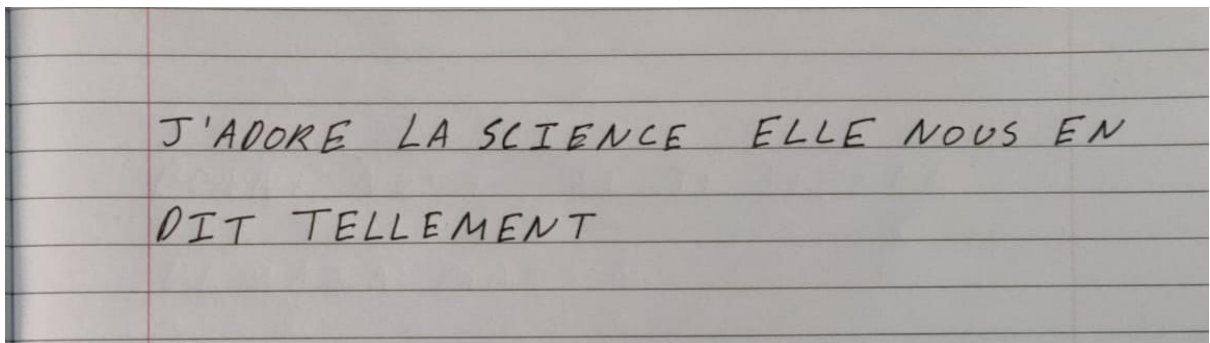 J'ADORE LA SCIENCE ELLE NOUS EN
DIT TELLEMENT